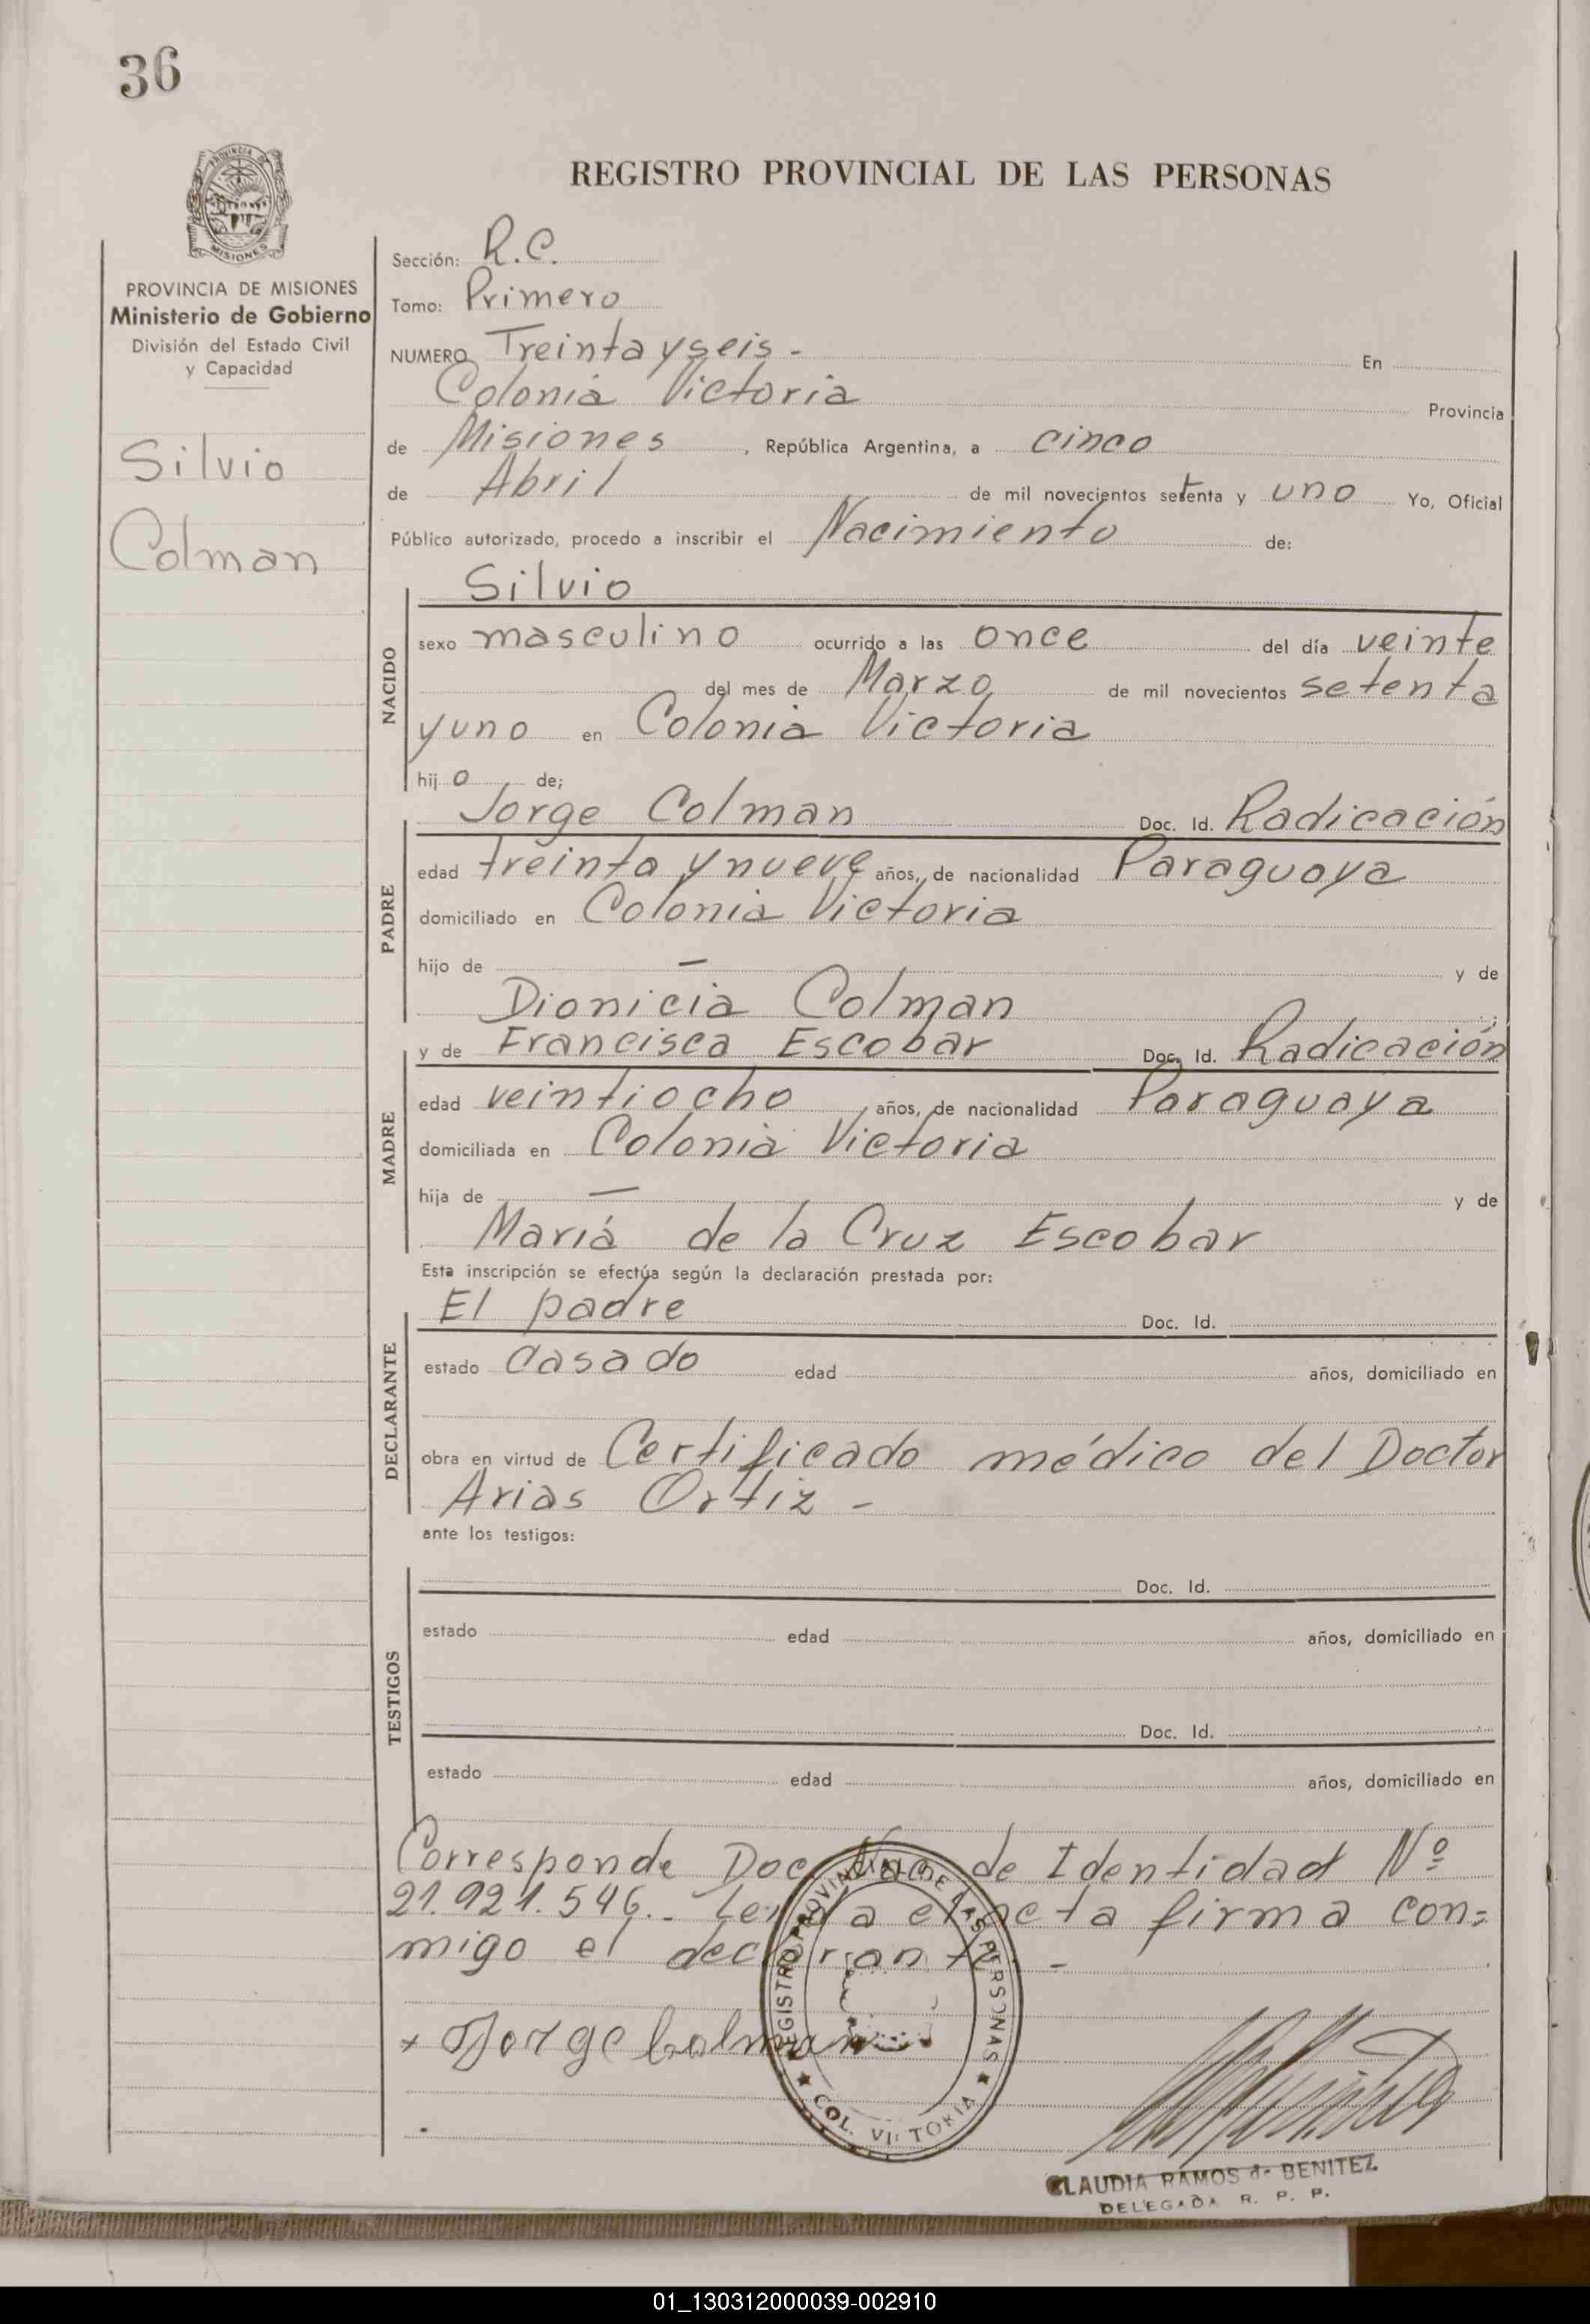 36
PROVINCIA DE MISIONES
PROVINCIA DE MISIONES
Ministerio de Gobierno
División del Estado Civil
y Capacidad
Silvio
Colman
REGISTRO PROVINCIAL DE LAS PERSONAS
Sección: R.C.
Tomo: Primero
NUMERO Treinta y seis - En
Colonia Victoria Provincia
de Misiones, República Argentina, a cinco
de Abril de mil novecientos setenta y uno Yo, Oficial
Público autorizado, procedo a inscribir el Nacimiento de:
NACIDO
Silvio
sexo masculino ocurrido a las once del día veinte
del mes de Marzo de mil novecientos setenta
y uno en Colonia Victoria
hijo de;
PADRE
Jorge Colman Doc. Id. Radicación
edad treinta y nueve años, de nacionalidad Paraguaya
domiciliado en Colonia Victoria
hijo de — y de
Dionicia Colman
MADRE
y de Francisca Escobar Doc. Id. Radicación
edad veintiocho años, de nacionalidad Paraguaya
domiciliada en Colonia Victoria
hija de — y de
Mariá de la Cruz Escobar
Esta inscripción se efectúa según la declaración prestada por:
DECLARANTE
El padre Doc. Id.
estado Casado edad años, domiciliado en
obra en virtud de Certificado médico del Doctor
Arias Ortiz -
ante los testigos:
TESTIGOS
Doc. Id.
estado edad años, domiciliado en
Doc. Id.
estado edad años, domiciliado en
Corresponde Doc. Nac. de Identidad Nº
21.921.546.- Leida el acta firma con=
migo el declarante. -
x Jorge Colman
REGISTRO PROVINCIAL DE LAS PERSONAS
★ COL. VICTORIA ★
CLAUDIA RAMOS de BENITEZ
DELEGADA R. P. P.
01_130312000039-002910